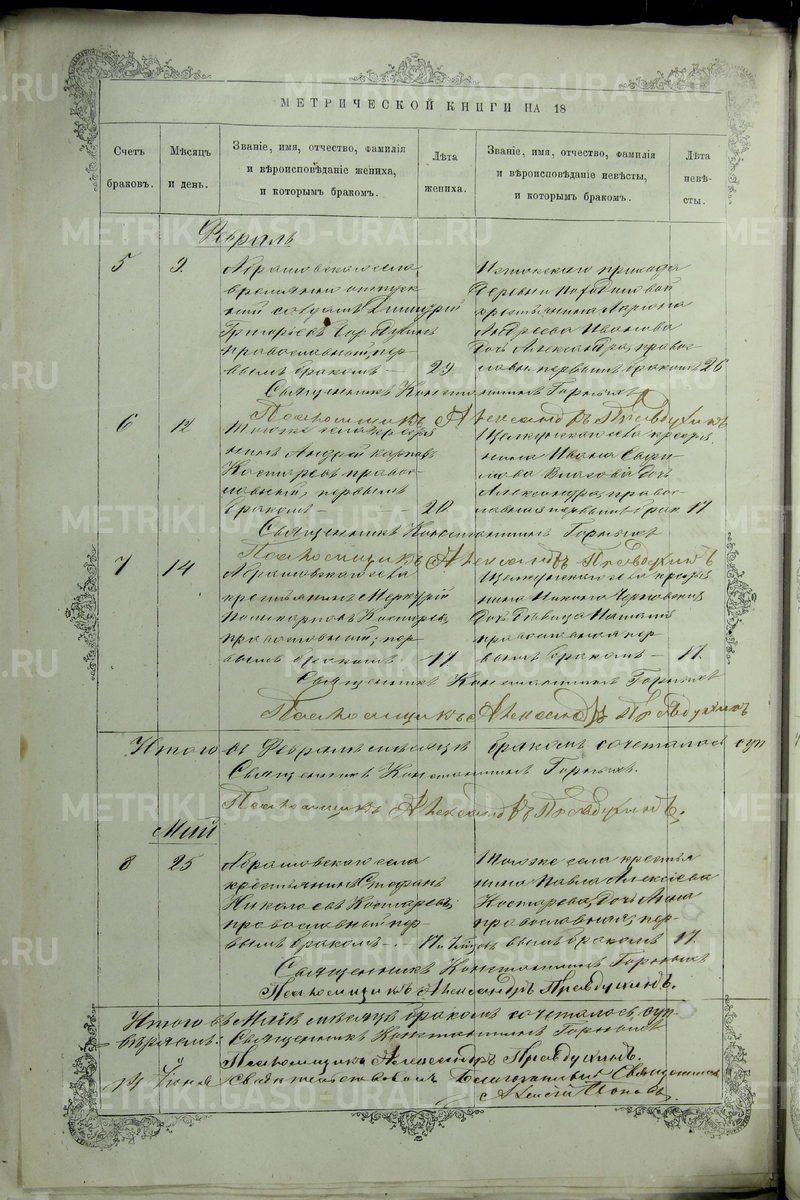 МЕТРИЧЕСКОЙ КНИГИ НА 18
Счетъ браковъ.
Мѣсяцъ и день.
Званіе, имя, отчество, фамилія
и вѣроисповѣданіе жениха,
и которымъ бракомъ.
Лѣта жениха.
Званіе, имя, отчество, фамилія
и вѣроисповѣданіе невѣсты,
и которымъ бракомъ.
Лѣта невѣ-
сты.
Февраль
5
9
села
временно отпуск
ной солдатъ Димитрій
Григорьевъ
православный, пер
вымъ бракомъ — 29
прихода
деревни
крестьянина Лариона
Андреева Иванова
дочь Александра, правос
лавн. первымъ бракомъ 26
Священникъ Константинъ Горныхъ
Псаломщикъ Александръ Правдухинъ
6
12
Тогоже села крестья
нинъ Андрей Карповъ
Костаревъ правос-
лавный, первымъ
бракомъ — 20
села крестья
нина Ивана
дочь
Александра, право-
славная первымъ брак. 17
Священникъ Константинъ Горныхъ
Псаломщикъ Александръ Правдухинъ
7
14
села
крестьянинъ Меркурій
Поликарповъ Костаревъ,
православный, пер-
вымъ бракомъ. 17
села крестья
нина
дочь дѣвица
православная пер-
вымъ бракомъ — 17.
Священникъ Константинъ Горныхъ
Псаломщикъ Александръ Правдухинъ
Итого въ Февралѣ мѣсяцѣ бракомъ сочеталось суп
Священникъ Константинъ Горныхъ.
Псаломщикъ Александръ Правдухинъ.
Май
8
25
села
крестьянинъ Стефанъ
Николаевъ Костаревъ,
православный пер-
вымъ бракомъ —. 17
Тогоже села крестья
нина Павла Алексіева
Костарева, дочь Анна
православная, пер-
вымъ бракомъ 17.
Священникъ Константинъ Горныхъ
Псаломщикъ Александръ Правдухинъ.
Итого въ Маѣ мѣсяцѣ бракомъ сочеталось суп-
Священникъ Константинъ Горныхъ
Псаломщикъ Александръ Правдухинъ.
14 Іюня Благочинный Священникъ
Алексій Поповъ.
METRIKI.GASO-URAL.RU